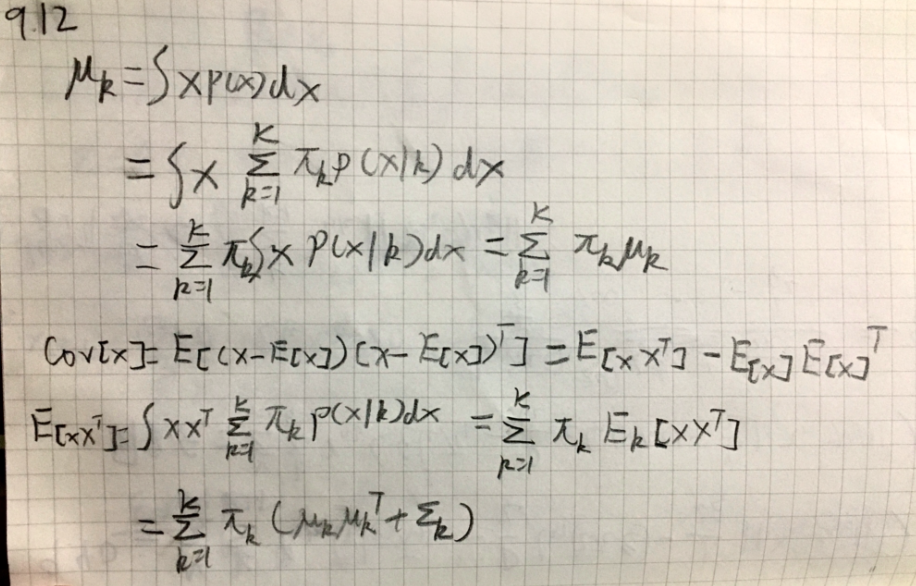 9.12
μ_k = ∫ x p(x) dx
= ∫ x Σ_{k=1}^{K} π_k p(x|k) dx
= Σ_{k=1}^{K} π_k ∫ x p(x|k) dx = Σ_{k=1}^{K} π_k μ_k
Cov[x] = E[(x-E[x])(x-E[x])^T] = E[xx^T] - E[x]E[x]^T
E[xx^T] = ∫ xx^T Σ_{k=1}^{K} π_k p(x|k) dx = Σ_{k=1}^{K} π_k E_k[xx^T]
= Σ_{k=1}^{K} π_k (μ_k μ_k^T + Σ_k)